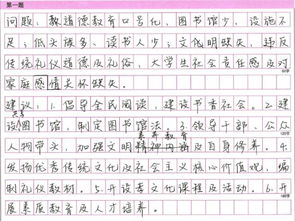 第一题
问题：教道德教育口号化，图书馆少，设施不
足；低头族多、读书人少；文化明缺失，违反
传统文化道德及礼俗，大学生社会责任感及对
家庭感情关怀缺失。
建议：1.倡导全民阅读，建设书香社会。2.建
设图书馆，制定图书馆法。3.领导干部、公众
素养教育
人物带头，加强文明精神内涵及自身修养。4.
发扬优秀传统文化及社会主义核心价值观，编
制礼仪教材。5.开设孝文化课程及活动。6.开
展素质教育及人才培养。